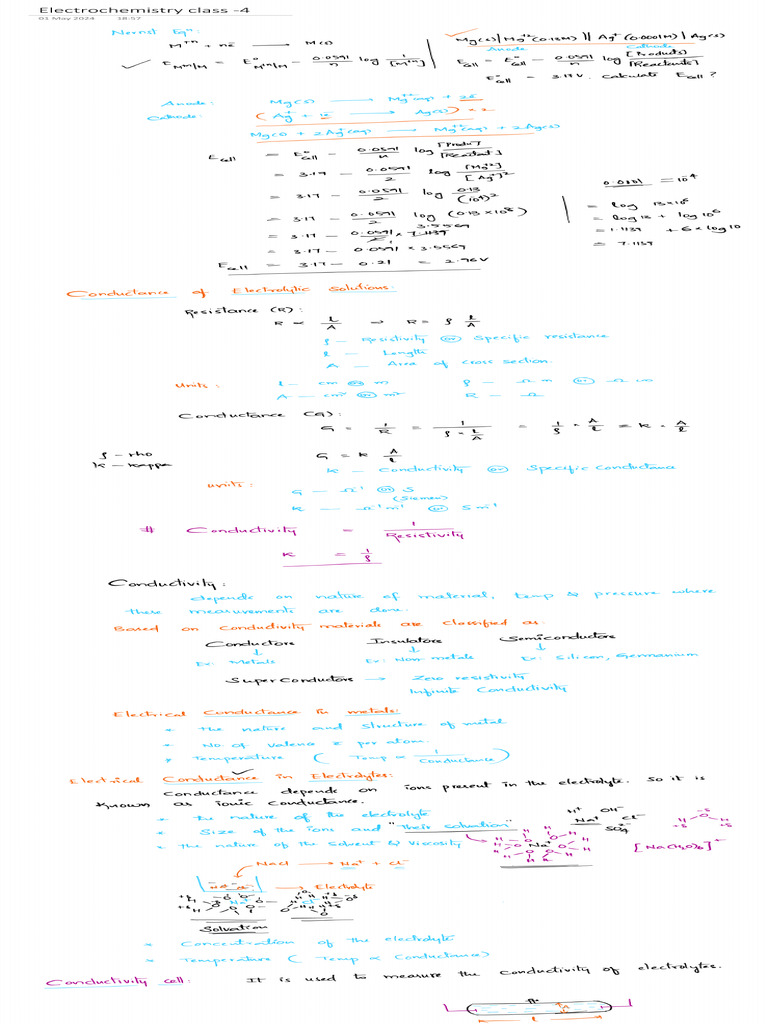 Electrochemistry class -4
01 May 2024 18:57
Nernst Eqn:
M⁺ⁿ + ne⁻ ⟶ M(s)
✓ E M⁺ⁿ/M = E° M⁺ⁿ/M − 0.0591/n log 1/[M⁺ⁿ]
✓ Mg(s) | Mg⁺²(0.13M) || Ag⁺(0.0001M) | Ag(s)
Anode Cathode
Ecell = E°cell − 0.0591/n log [Products]/[Reactants]
E°cell = 3.17V. Calculate Ecell ?
Anode: Mg(s) ⟶ Mg⁺²(aq) + 2e⁻
Cathode: (Ag⁺ + 1e⁻ ⟶ Ag(s)) × 2
Mg(s) + 2Ag⁺(aq) ⟶ Mg⁺²(aq) + 2Ag(s)
Ecell = E°cell − 0.0591/n log [Product]/[Reactant]
= 3.17 − 0.0591/2 log [Mg⁺²]/[Ag⁺]²
= 3.17 − 0.0591/2 log 0.13/(10⁻⁴)²
= 3.17 − 0.0591/2 log (0.13×10⁸)
= 3.17 − 0.0591/2 × 7.1139 3.5569
= 3.17 − 0.0591 × 3.5569
Ecell = 3.17 − 0.21 = 2.96V
0.0001 = 10⁻⁴
= log 13×10⁶
= log 13 + log 10⁶
= 1.1139 + 6 × log 10
= 7.1139
Conductance of Electrolytic Solutions:
Resistance (R):
R ∝ l/A ⇒ R = ρ l/A
ρ — Resistivity (or) Specific resistance
l — Length
A — Area of cross section
Units: l — cm (or) m ρ — Ω m (or) Ω cm
A — cm² (or) m² R — Ω
Conductance (G):
G = 1/R = 1/(ρ × l/A) = 1/ρ × A/l = K × A/l
ρ — rho
K — Kappa
G = K A/l
K — Conductivity (or) Specific conductance
Units: G — Ω⁻¹ (or) S
(Siemen)
K — Ω⁻¹m⁻¹ (or) S m⁻¹
# Conductivity = 1/Resistivity
K = 1/ρ
Conductivity:
depends on nature of material, temp & pressure where
these measurements are done.
Based on Conductivity materials are classified as:
Conductors Insulators Semiconductors
↓ ↓ ↓
Ex: Metals Ex: Non metals Ex: Silicon, Germanium
Super Conductors → Zero resistivity
Infinite Conductivity
Electrical Conductance in metals:
* The nature and structure of metal
* No of valence e⁻ per atom.
* Temperature (Temp ∝ 1/Conductance)
Electrical Conductance in Electrolytes: ✓
Conductance depends on ions present in the electrolyte. So it is
known as ionic conductance.
* The nature of the electrolyte
* Size of the ions and "their solvation"
* The nature of the solvent & Viscosity
H⁺ OH⁻
Na⁺ Cl⁻
SO₄⁻²
Na⁺
[Na(H₂O)₆]⁺
NaCl ⟶ Na⁺ + Cl⁻
→ Electrolyte
Na⁺ Cl⁻
Solvation
* Concentration of the electrolyte
* Temperature (Temp ∝ Conductance)
Conductivity cell: It is used to measure the conductivity of electrolytes.
A
l